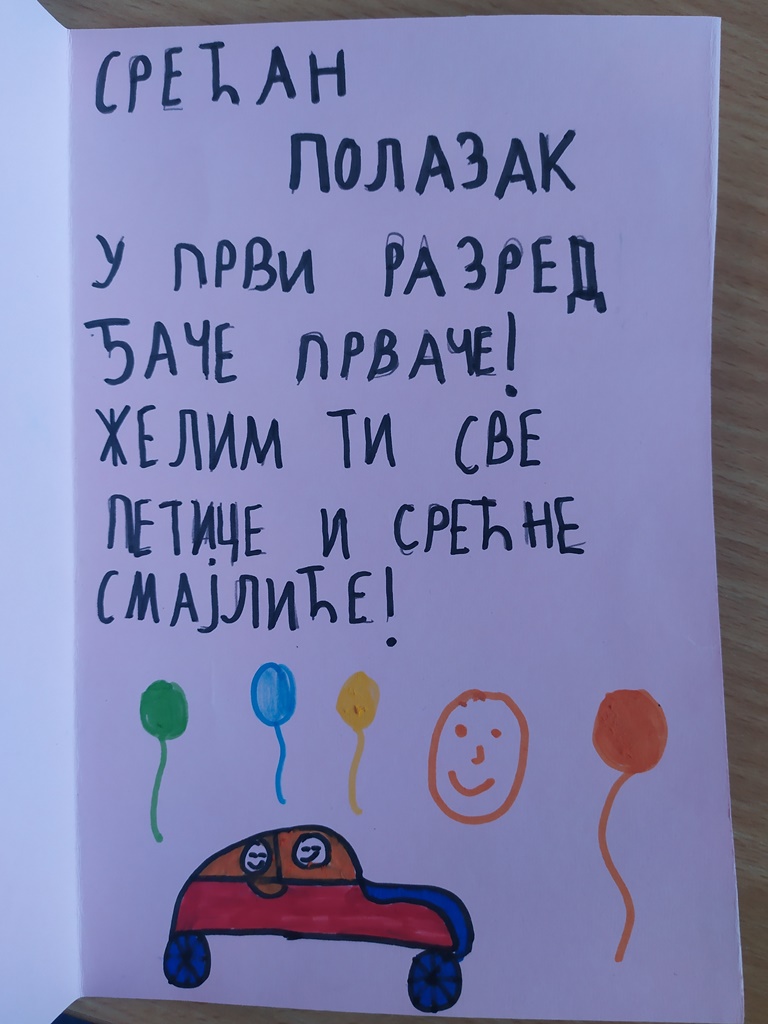 СРЕЋАН
ПОЛАЗАК
У ПРВИ РАЗРЕД
ЂАЧЕ ПРВАЧЕ!
ЖЕЛИМ ТИ СВЕ
ПЕТИЦЕ И СРЕЋНЕ
СМАЈЛИЋЕ!